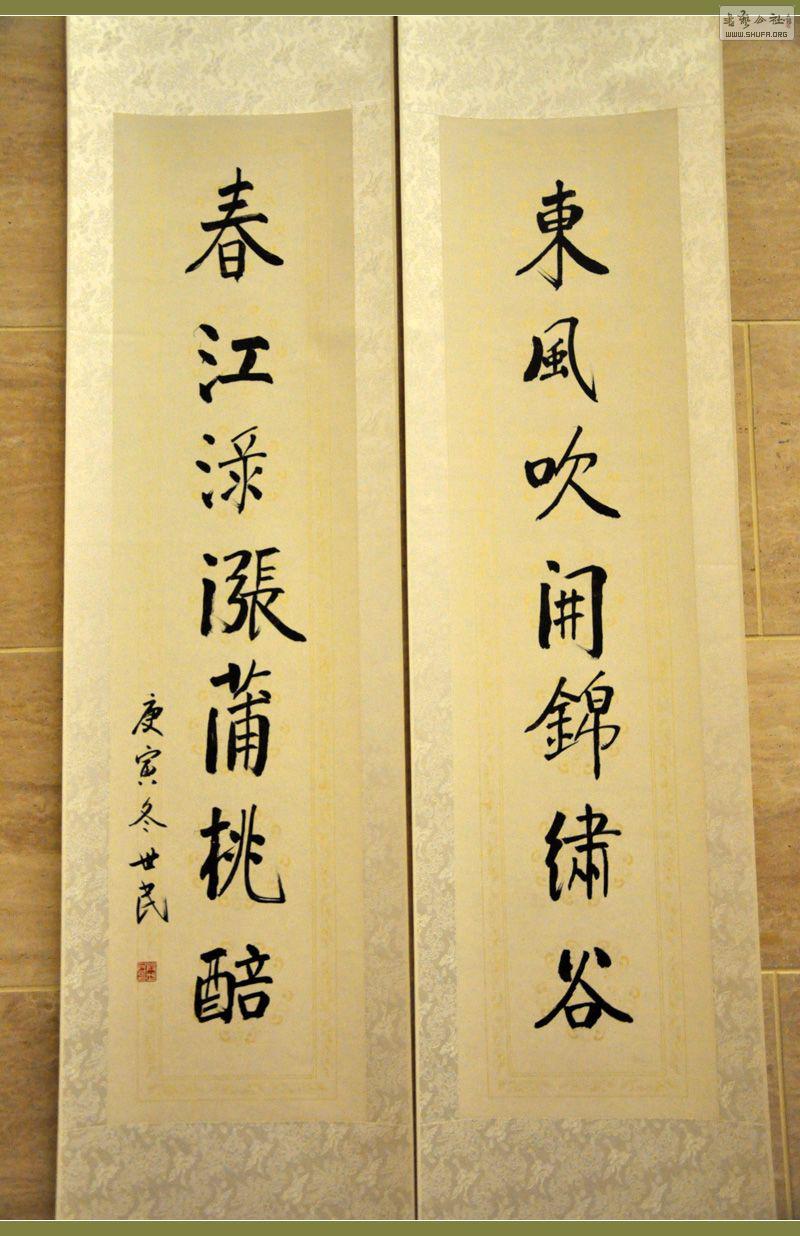 東風吹開錦繡谷
春江渌漲蒲桃醅
庚寅冬世民
WWW.SHUFA.ORG